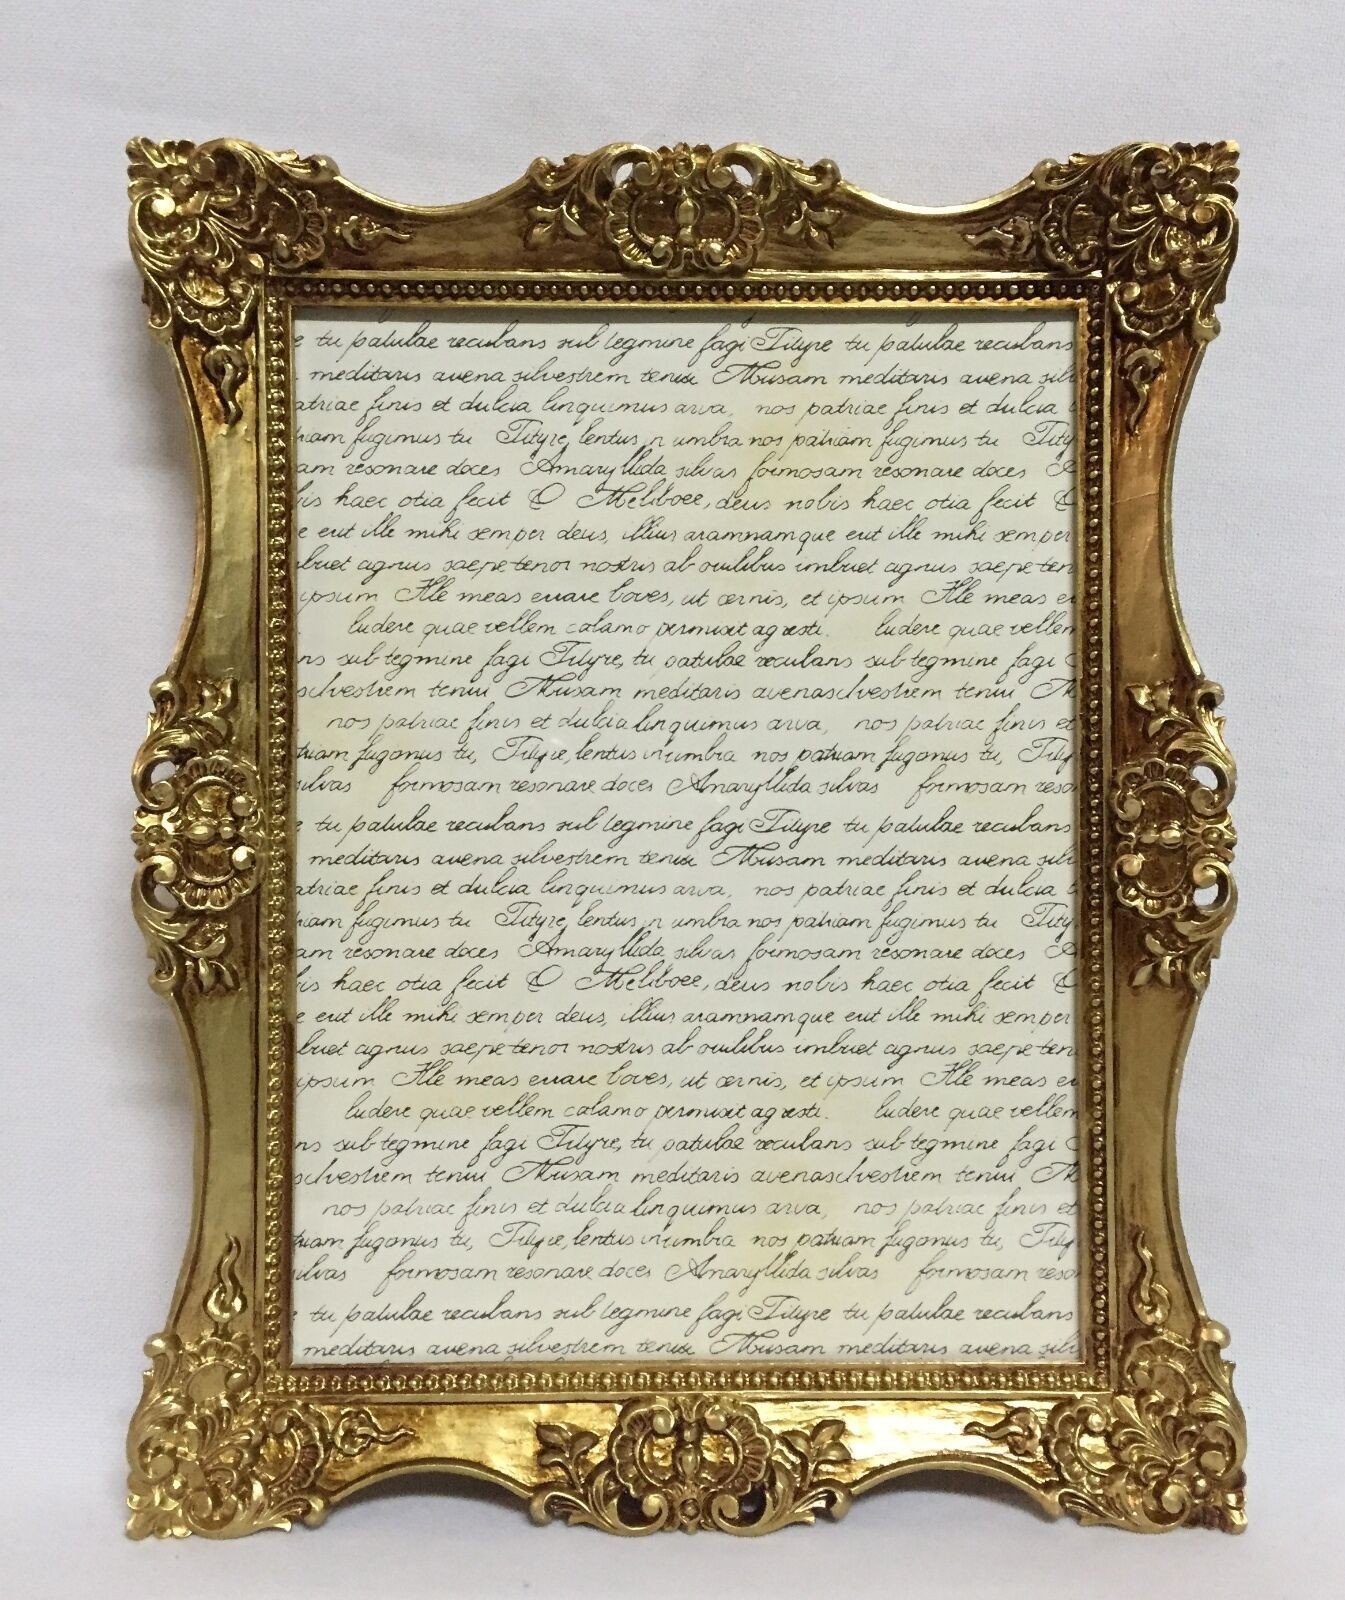 e tu patulae recubans sub tegmine fagi Tityre tu patulae recubans
meditaris avena silvestrem tenui Musam meditaris avena silv
atriae finis et dulcia linquimus arva, nos patriae finis et dulcia l
riam fugimus tu Tityre, lentus n umbra nos patriam fugimus tu Tity
am resonare doces Amaryllida silvas formosam resonare doces A
bis haec otia fecit O Meliboee, deus nobis haec otia fecit O
e erit ille mihi semper deus, illius aramnamque erit ille mihi semper
buet agnus saepe tenor nostris ab ovilibus imbuet agnus saepe ten
ipsum Ille meas errare boves, ut cernis, et ipsum Ille meas er
ludere quae vellem calamo permisit agresti. ludere quae vellem
ns sub tegmine fagi Tityre, tu patulae recubans sub tegmine fagi
silvestrem tenui Musam meditaris avenasilvestrem tenui M
nos patriae finis et dulcia linquimus arva, nos patriae finis et
triam fugomus tu, Tityre, lentus in umbra nos patriam fugomus tu, Tity
silvas formosam resonare doces Amaryllida silvas formosam reso
e tu patulae recubans sub tegmine fagi Tityre tu patulae recubans
meditaris avena silvestrem tenui Musam meditaris avena silv
atriae finis et dulcia linquimus arva, nos patriae finis et dulcia l
riam fugimus tu Tityre, lentus n umbra nos patriam fugimus tu Tity
am resonare doces Amaryllida silvas formosam resonare doces A
bis haec otia fecit O Meliboee, deus nobis haec otia fecit O
e erit ille mihi semper deus, illius aramnamque erit ille mihi semper
buet agnus saepe tenor nostris ab ovilibus imbuet agnus saepe ten
ipsum Ille meas errare boves, ut cernis, et ipsum Ille meas er
ludere quae vellem calamo permisit agresti. ludere quae vellem
ns sub tegmine fagi Tityre, tu patulae recubans sub tegmine fagi
silvestrem tenui Musam meditaris avenasilvestrem tenui M
nos patriae finis et dulcia linquimus arva, nos patriae finis et
triam fugomus tu, Tityre, lentus in umbra nos patriam fugomus tu, Tity
silvas formosam resonare doces Amaryllida silvas formosam reso
e tu patulae recubans sub tegmine fagi Tityre tu patulae recubans
meditaris avena silvestrem tenui Musam meditaris avena silv